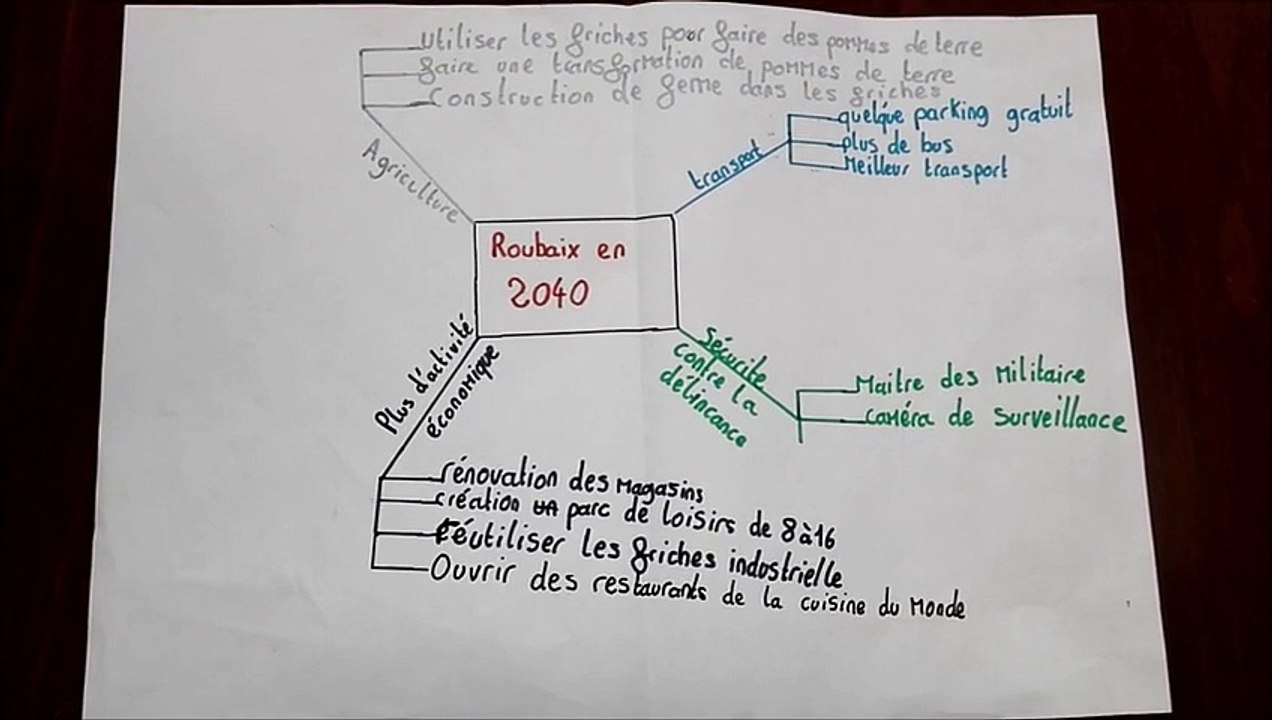 utiliser les friches pour faire des pommes de terre
faire une transformation de pommes de terre
Construction de ferme dans les friches
Agriculture
quelque parking gratuit
plus de bus
Meilleur transport
transport
Roubaix en
2040
Sécurite
contre la
délincance
Maitre des Militaire
caméra de surveillance
Plus d'activité
économique
rénovation des magasins
création un parc de loisirs de 8 à 16
réutiliser les friches industrielle
Ouvrir des restaurants de la cuisine du Monde